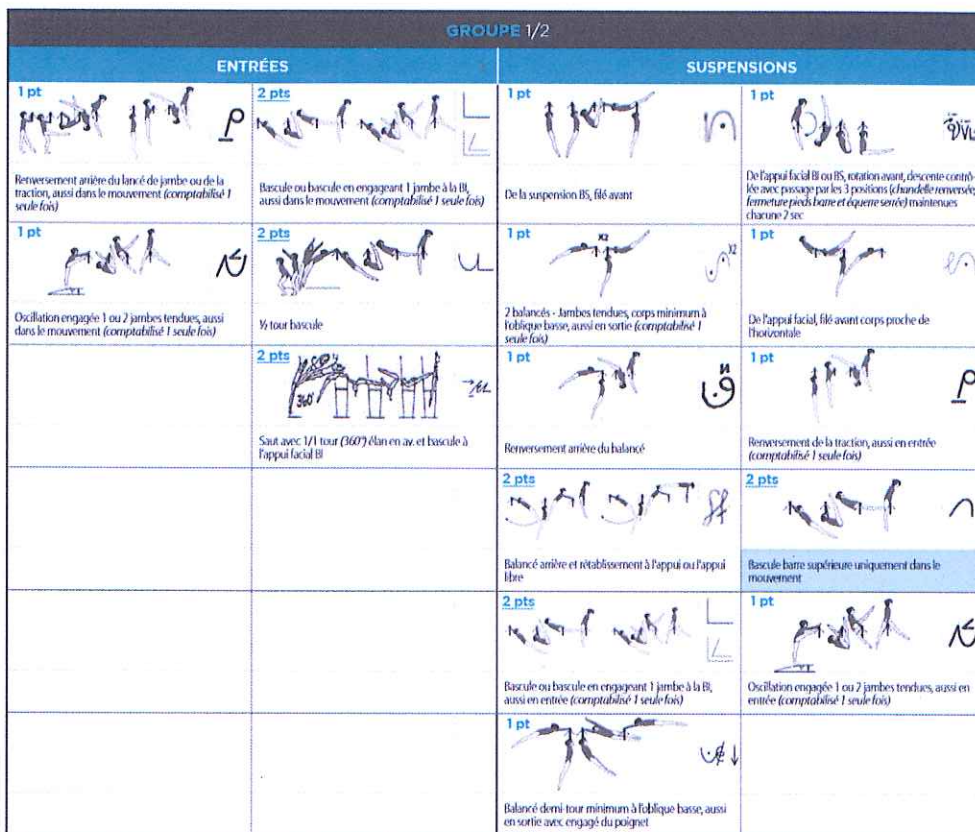 GROUPE 1/2
ENTRÉES
SUSPENSIONS
1 pt
Renversement arrière du lancé de jambe ou de la
traction, aussi dans le mouvement (comptabilisé 1
seule fois)
2 pts
Bascule ou bascule en engageant 1 jambe à la BI,
aussi dans le mouvement (comptabilisé 1 seule fois)
1 pt
De la suspension BS, filé avant
1 pt
VL
De l'appui facial BI ou BS, rotation avant, descente contrô-
lée avec passage par les 3 positions (chandelle renversée,
fermeture pieds barre et équerre serrée) maintenues
chacune 2 sec
1 pt
Oscillation engagée 1 ou 2 jambes tendues, aussi
dans le mouvement (comptabilisé 1 seule fois)
2 pts
½ tour bascule
1 pt
X2
X2
2 balancés - Jambes tendues, corps minimum à
l'oblique basse, aussi en sortie (comptabilisé 1
seule fois)
1 pt
De l'appui facial, filé avant corps proche de
l'horizontale
2 pts
360°
Saut avec 1/1 tour (360°) élan en av. et bascule à
l'appui facial BI
1 pt
Renversement arrière du balancé
1 pt
Renversement de la traction, aussi en entrée
(comptabilisé 1 seule fois)
2 pts
Balancé arrière et rétablissement à l'appui ou l'appui
libre
2 pts
Bascule barre supérieure uniquement dans le
mouvement
2 pts
Bascule ou bascule en engageant 1 jambe à la BI,
aussi en entrée (comptabilisé 1 seule fois)
1 pt
Oscillation engagée 1 ou 2 jambes tendues, aussi en
entrée (comptabilisé 1 seule fois)
1 pt
Balancé demi-tour minimum à l'oblique basse, aussi
en sortie avec engagé du poignet